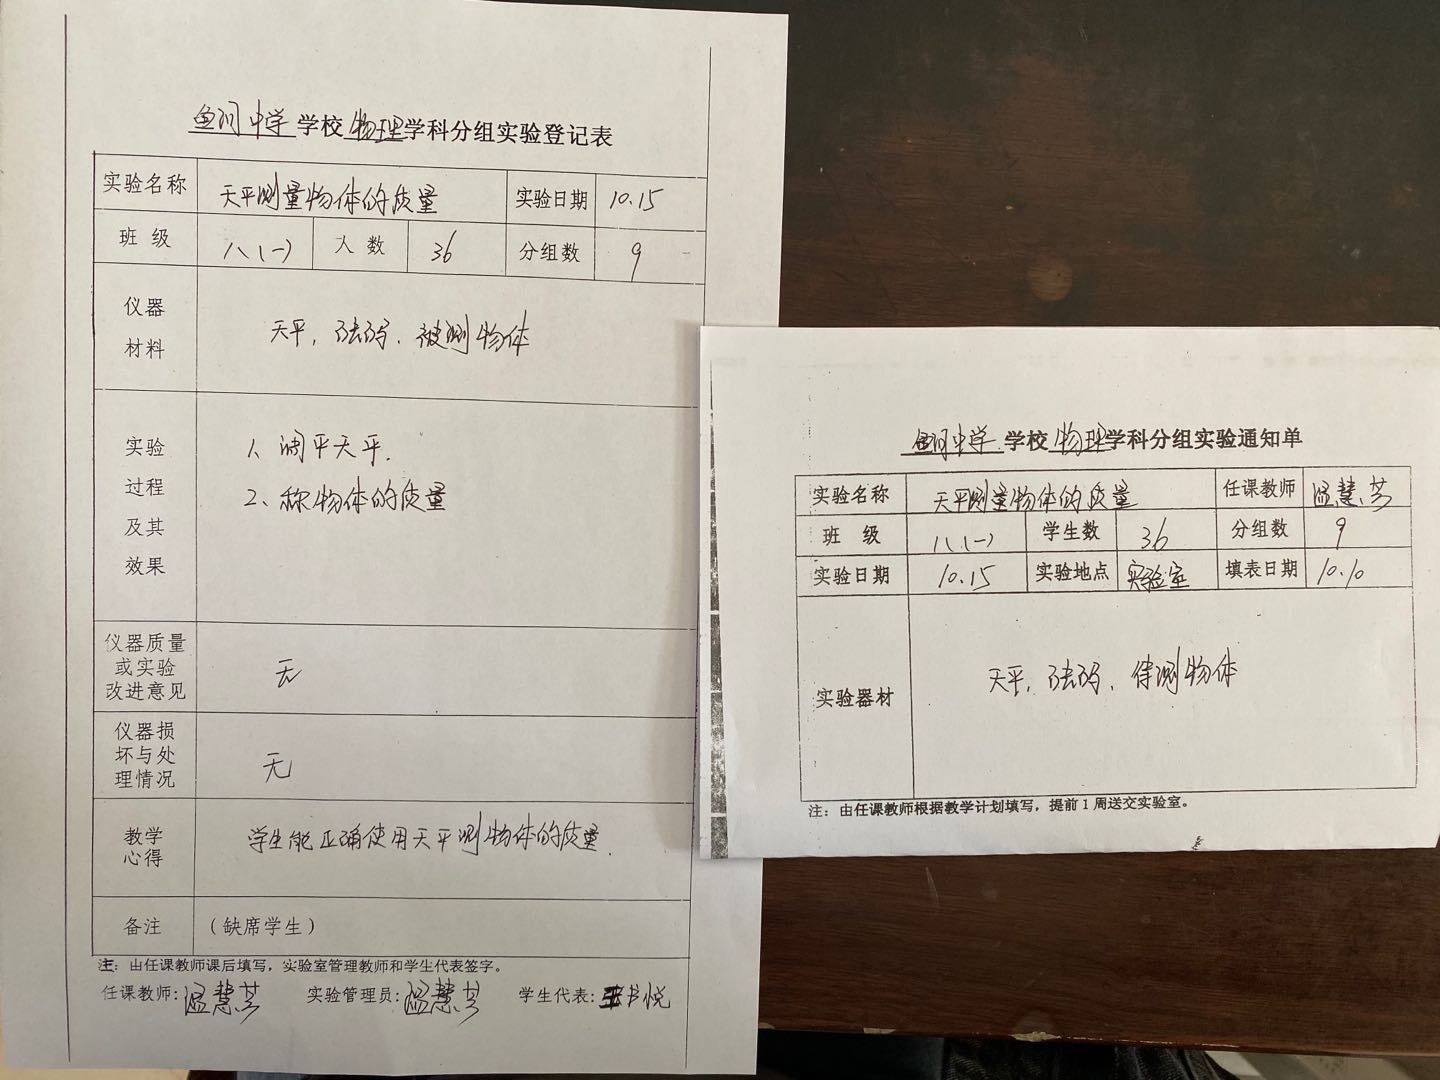 鱼河中学学校物理学科分组实验登记表
实验名称 天平测量物体的质量 实验日期 10.15
班级 八(一) 人数 36 分组数 9
仪器材料 天平,砝码、被测物体
实验过程及其效果
1、调平天平.
2、称物体的质量
仪器质量或实验改进意见 无
仪器损坏与处理情况 无
教学心得 学生能正确使用天平测物体的质量.
备注 (缺席学生)
注:由任课教师课后填写,实验室管理教师和学生代表签字。
任课教师:温慧芳 实验管理员:温慧芳 学生代表:王书悦
鱼河中学学校物理学科分组实验通知单
实验名称 天平测量物体的质量 任课教师 温慧芳
班级 八(一) 学生数 36 分组数 9
实验日期 10.15 实验地点 实验室 填表日期 10.10
实验器材 天平,砝码、待测物体
注:由任课教师根据教学计划填写,提前1周送交实验室。